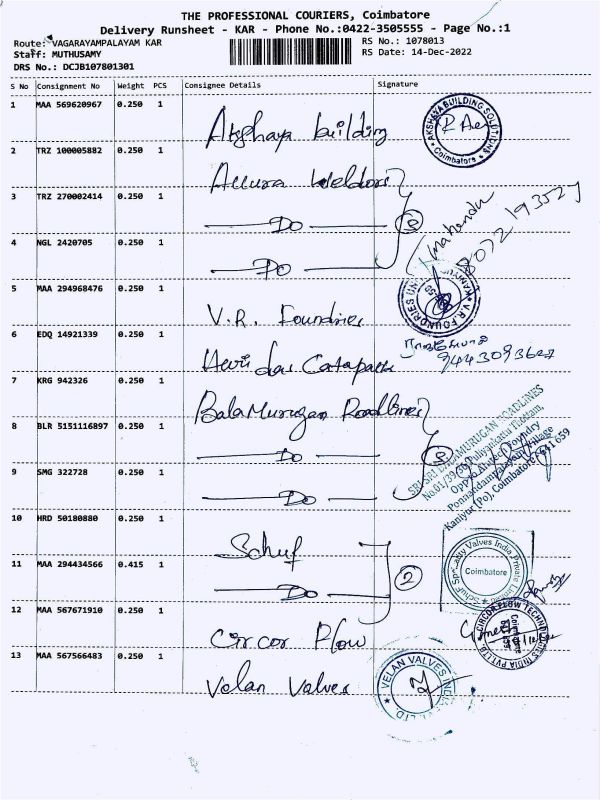 THE PROFESSIONAL COURIERS, Coimbatore
Delivery Runsheet - KAR - Phone No.:0422-3505555 - Page No.:1
Route: VAGARAYAMPALAYAM KAR
Staff: MUTHUSAMY
DRS No.: DCJB107801301
RS No.: 1078013
RS Date: 14-Dec-2022
S No Consignment No Weight PCS Consignee Details Signature
1 MAA 569620967 0.250 1 Akshaya building
AKSHAYA BUILDING SOLUTIONS Coimbatore
2 TRZ 100005882 0.250 1 Accura Weldors
3 TRZ 270002414 0.250 1 Do
4 NGL 2420705 0.250 1 Do
3
Mahendra
8072193527
5 MAA 294968476 0.250 1 V.R. Foundries
V.R. FOUNDRIES
6 EDQ 14921339 0.250 1
9443093627
7 KRG 942326 0.250 1 BalaMurugan Roadlines
8 BLR 5151116897 0.250 1 Do
9 SMG 322728 0.250 1 Do
3
SRI SRI BALAMURUGAN ROADLINES
No.01/39/39, Puliyankattu Thottam,
Ponnandampalayam Village
Kaniyur (Po), Coimbatore-641 659
10 HRD 50180880 0.250 1 Schuf
11 MAA 294434566 0.415 1 Do
2
Schuf Speciality Valves India Private Limited
Coimbatore
12 MAA 567671910 0.250 1 Circor Flow
CIRCOR FLOW TECHNOLOGIES INDIA PVT LTD
13 MAA 567566483 0.250 1 Velan Valves
VELAN VALVES INDIA PVT LTD